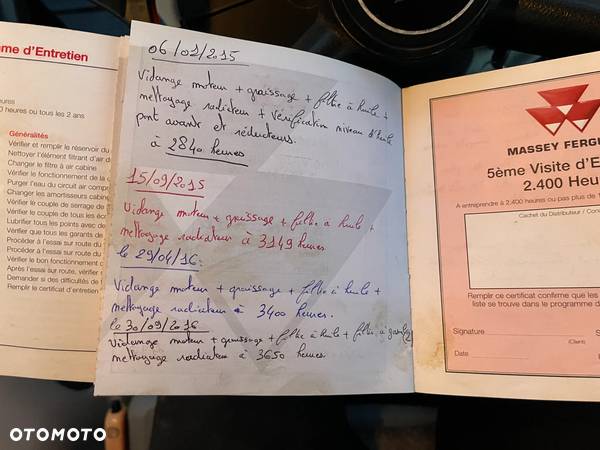 me d'Entretien
ures
0 heures ou tous les 2 ans
Généralités
Vérifier et remplir le réservoir du
Nettoyer l'élément filtrant d'air de
Changer le filtre à air cabine
Vérifier le fonctionnement de la c
Purger l'eau du circuit air compri
Changer les amortisseurs cabine
Vérifier le couple de serrage de
Vérifier le couple de tous les éc
Lubrifier tous les points avec de
Vérifier que tous les garants de
Procéder à l'essai sur route du
Procéder à l'essai sur route du
Vérifier le bon fonctionnement d
Après l'essai sur route, vérifier
Demander si des difficultés de
Remplir le certificat d'entretien
06/01/2015
Vidange moteur + graissage + filtre à huile +
nettoyage radiateur + vérification niveau d'huile
pont avant et réducteurs.
à 2840 heures
15/09/2015
Vidange moteur + graissage + filtre à huile +
nettoyage radiateur à 3149 heures
le 29/04/16:
Vidange moteur + graissage + filtre à huile +
nettoyage radiateur à 3400 heures.
le 30/09/2016
Vidange moteur + graissage + filtre à huile + filtre à gasoil
nettoyage radiateur à 3650 heures
MASSEY FERGU
5ème Visite d'E
2.400 Heu
A entreprendre à 2.400 heures ou pas plus de 1
Cachet du Distributeur / Con
Remplir ce certificat confirme que les
liste se trouve dans le programme d
Signature
(Client)
S
Date
OTOMOTO